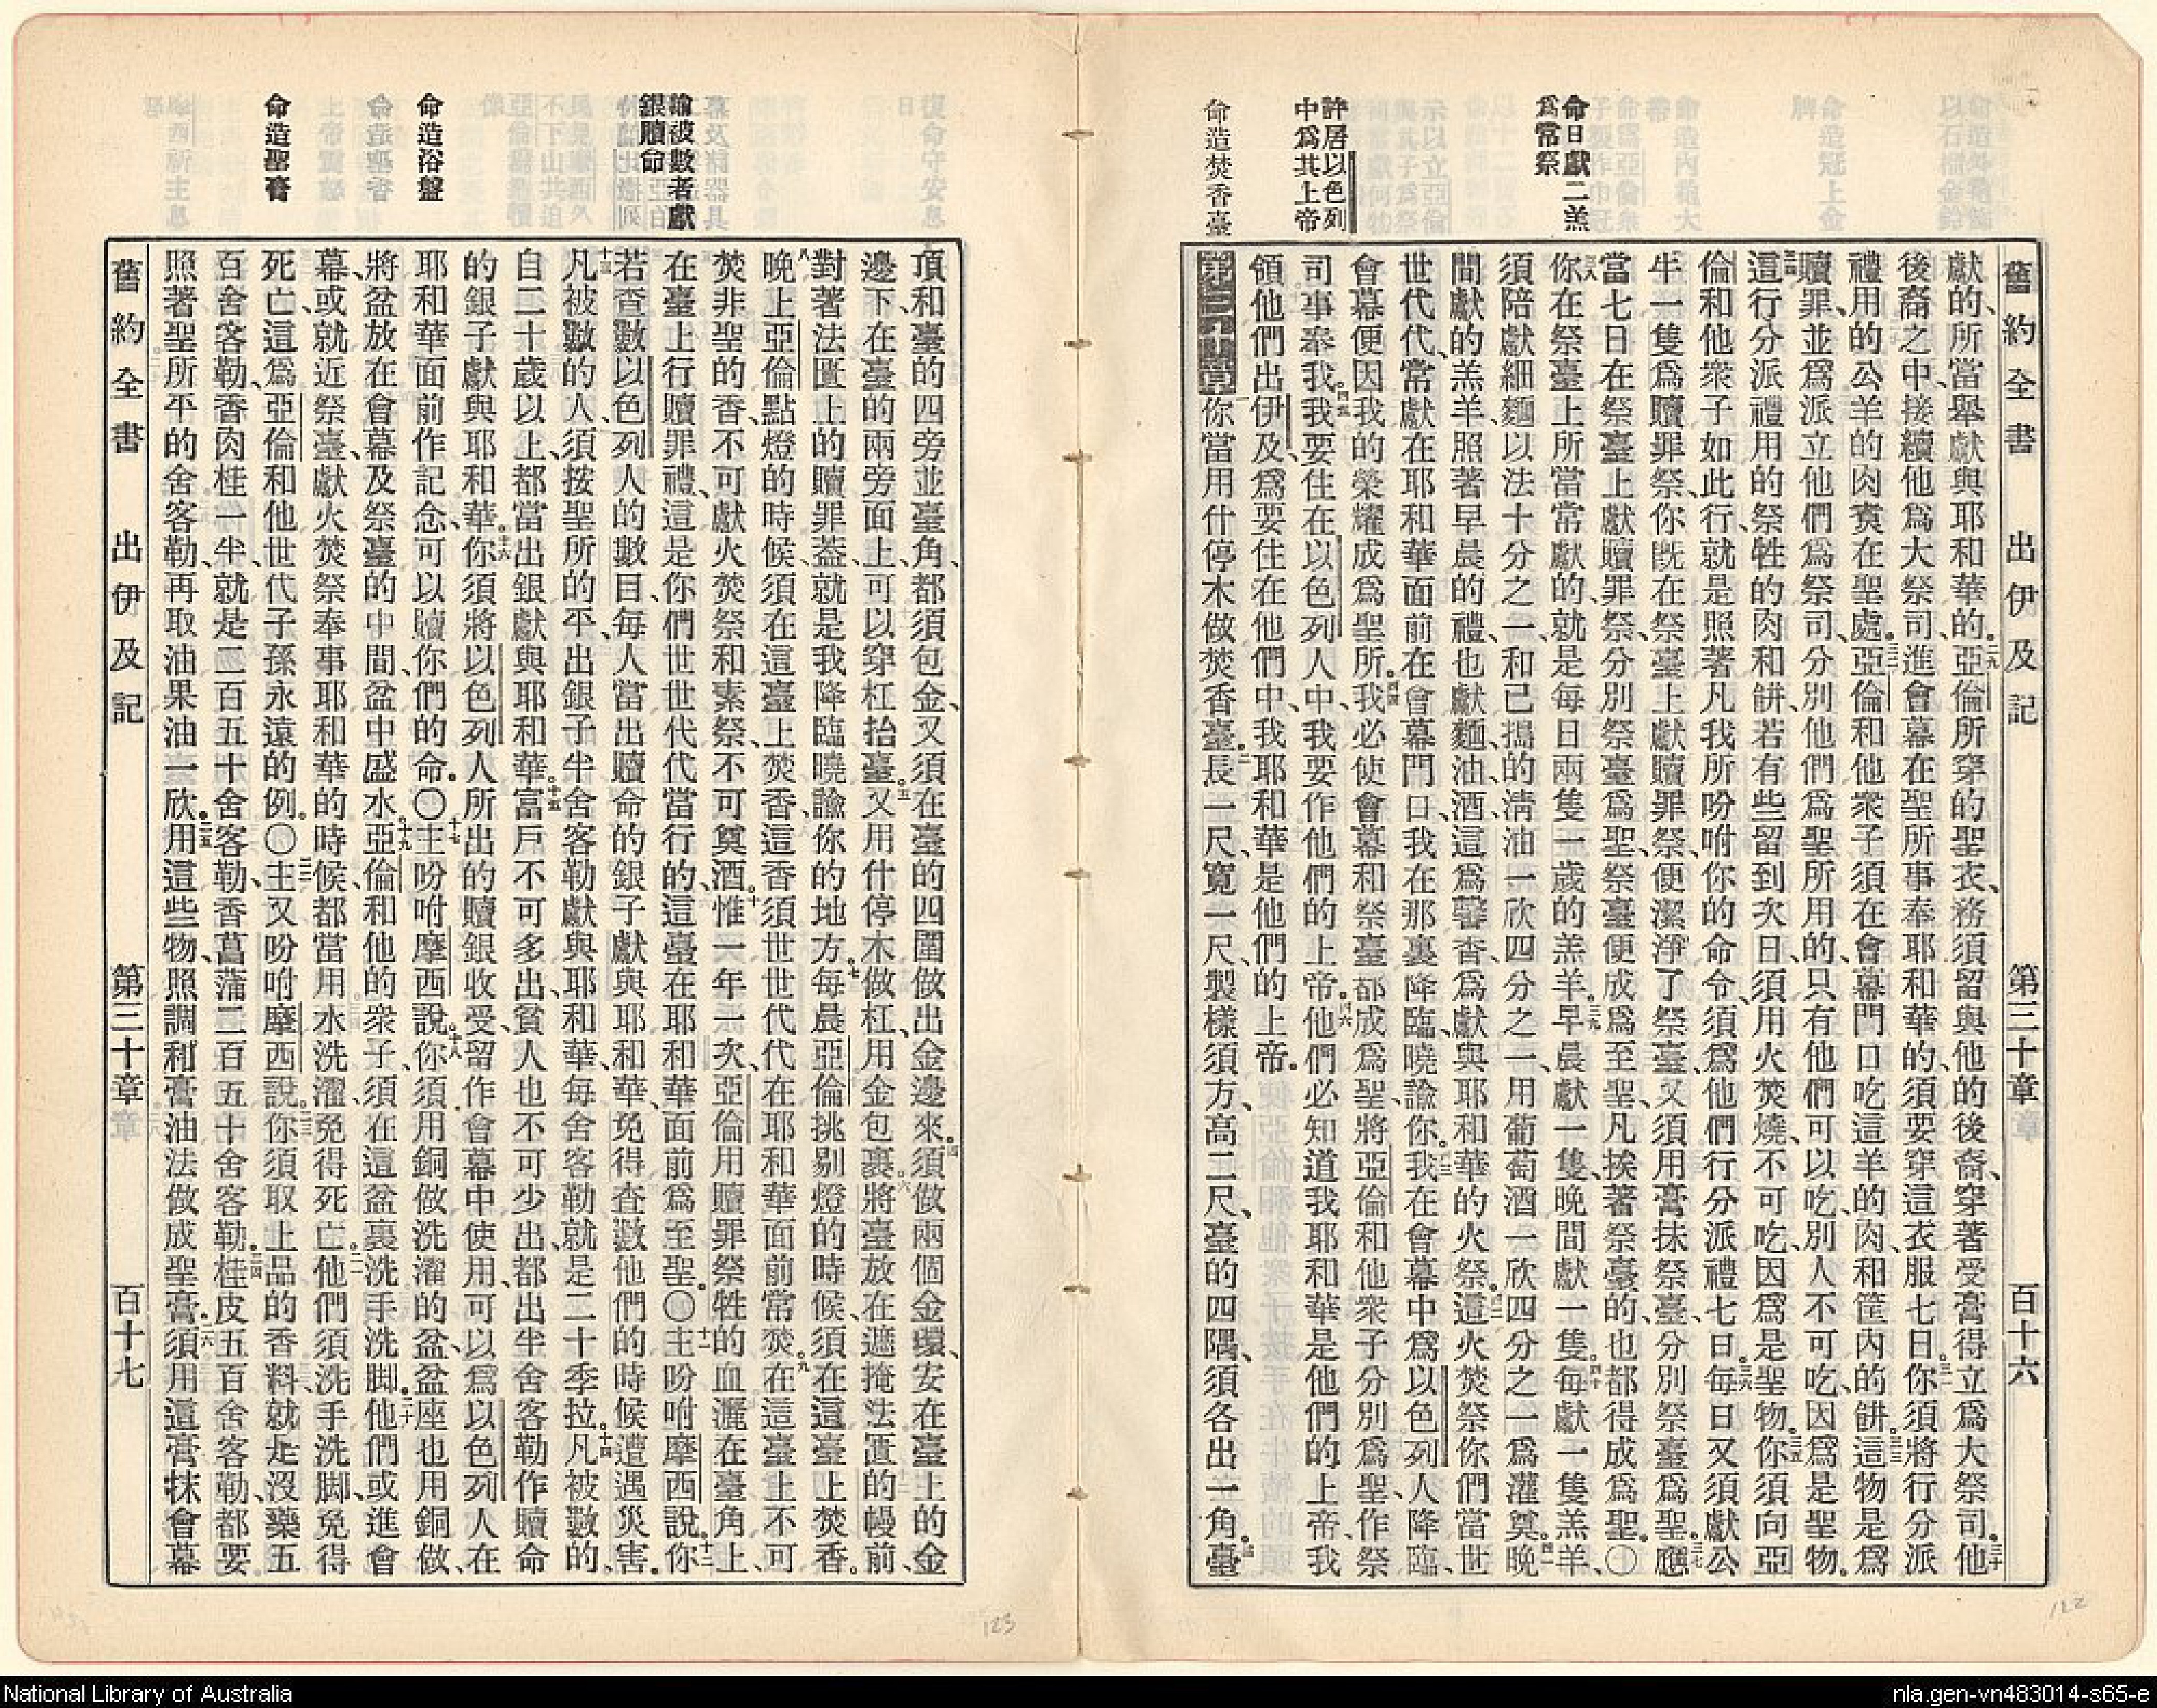 命日獻二羔
爲常祭
許居以色列
中爲其上帝
命造焚香臺
舊約全書 出伊及記 第三十章 百十六
獻的、所當舉獻與耶和華的。二九亞倫所穿的聖衣、務須留與他的後裔、穿著受膏得立爲大祭司。三十他
後裔之中、接續他爲大祭司、進會幕在聖所事奉耶和華的、須要穿這衣服七日。三一你須將行分派
禮用的公羊的肉煑在聖處。三二亞倫和他衆子須在會幕門口吃這羊的肉、和筐內的餅。三三這物是爲
贖罪、並爲派立他們爲祭司、分別他們爲聖所用的、只有他們可以吃、別人不可吃、因爲是聖物。
三四這行分派禮用的祭牲的肉和餅、若有些留到次日、須用火焚燒、不可吃、因爲是聖物。三五你須向亞
倫和他衆子如此行、就是照著凡我所吩咐你的命令、須爲他們行分派禮七日。三六每日又須獻公
牛一隻爲贖罪祭、你旣在祭臺上獻贖罪祭、便潔淨了祭臺、又須用膏抹祭臺、分別祭臺爲聖。三七應
當七日在祭臺上獻贖罪祭、分別祭臺爲聖、祭臺便成爲至聖、凡挨著祭臺的、也都得成爲聖。〇
三八你在祭臺上所當常獻的、就是每日兩隻一歲的羔羊。三九早晨獻一隻、晚間獻一隻。四十每獻一隻羔羊、
須陪獻細麵以法十分之一、和已搗的淸油一欣四分之一、用葡萄酒一欣四分之一爲灌奠。四一晚
間獻的羔羊、照著早晨的禮、也獻麵、油、酒、這爲馨香、爲獻與耶和華的火祭。四二這火焚祭你們當世
世代代、常獻在耶和華面前在會幕門口、我在那裏降臨、曉諭你。四三我在會幕中爲以色列人降臨、
會幕便因我的榮耀成爲聖所。四四我必使會幕和祭臺都成爲聖、將亞倫和他衆子分別爲聖、作祭
司事奉我。四五我要住在以色列人中、我要作他們的上帝。四六他們必知道我耶和華是他們的上帝、我
領他們出伊及、爲要住在他們中、我耶和華是他們的上帝。
第三十章 一你當用什停木做焚香臺。二長一尺、寬一尺、製樣須方、高二尺、臺的四隅、須各出一角。三臺
諭被數者獻
銀贖命
命造浴盤
命造聖膏
頂和臺的四旁並臺角、都須包金、又須在臺的四圍做出金邊來。四須做兩個金環、安在臺上的金
邊下、在臺的兩旁面上、可以穿杠抬臺。五又用什停木做杠、用金包裹。六將臺放在遮掩法匱的幔前、
對著法匱上的贖罪葢、就是我降臨曉諭你的地方。七每晨亞倫挑剔燈的時候、須在這臺上焚香。
八晚上亞倫點燈的時候、須在這臺上焚香、這香須世世代代、在耶和華面前常焚。九在這臺上不可
焚非聖的香、不可獻火焚祭和素祭、不可奠酒。十惟一年一次、亞倫用贖罪祭牲的血灑在臺角上、
在臺上行贖罪禮、這是你們世世代代當行的、這臺在耶和華面前爲至聖。〇十一主吩咐摩西說。十二你
若查數以色列人的數目、每人當出贖命的銀子獻與耶和華、免得查數他們的時候遭遇災害。
十三凡被數的人、須按聖所的平、出銀子半舍客勒獻與耶和華、每舍客勒就是二十季拉。十四凡被數的、
自二十歲以上、都當出銀獻與耶和華。十五富戶不可多出、貧人也不可少出、都出半舍客勒作贖命
的銀子獻與耶和華。十六你須將以色列人所出的贖銀收受、留作會幕中使用、可以爲以色列人在
耶和華面前作記念、可以贖你們的命。〇十七主吩咐摩西說。十八你須用銅做洗濯的盆、盆座也用銅做、
將盆放在會幕及祭臺的中間、盆中盛水。十九亞倫和他的衆子、須在這盆裏洗手洗脚。二十他們或進會
幕、或就近祭臺、獻火焚祭奉事耶和華的時候、都當用水洗濯、免得死亡。二一他們須洗手洗脚、免得
死亡、這爲亞倫和他世代子孫永遠的例。〇二二主又吩咐摩西說。二三你須取上品的香料、就是沒藥五
百舍客勒、香肉桂一半、就是二百五十舍客勒、香菖蒲二百五十舍客勒。二四桂皮五百舍客勒、都要
照著聖所平的舍客勒、再取油果油一欣。二五用這些物、照調和膏油法做成聖膏。二六須用這膏抹會幕
舊約全書 出伊及記 第三十章 百十七
122
123
National Library of Australia
nla.gen-vn483014-s65-e